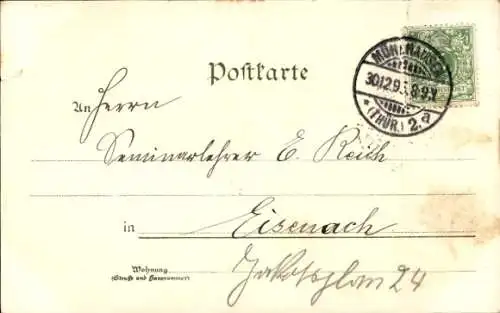 Postkarte
MÜHLHAUSEN
30.12.9 8-9.V.
* (THÜR.) 2.a
An Herrn
Seminarlehrer E. Reich
in Eisenach
Wohnung
(Straße und Hausnummer)
24